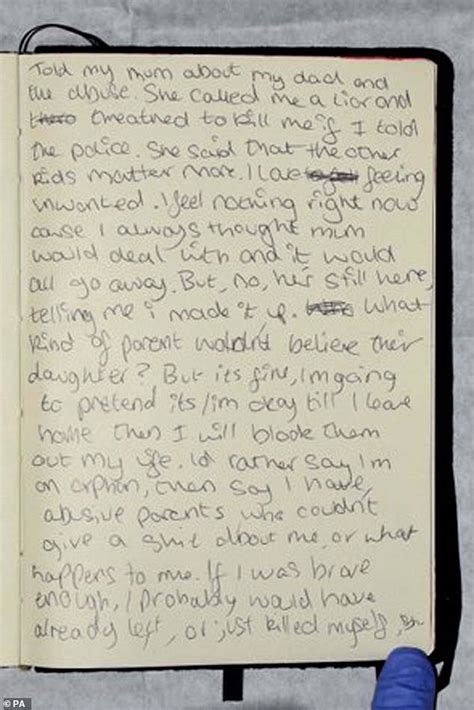 Told my mum about my dad and
the abuse. She called me a liar and
threatned to kill me if I told
the police. She said that the other
kids matter more. I love feeling
unwanted. I feel nothing right now
cause I always thought mum
would deal with and it would
all go away. But, no, he's still here,
telling me i made it up. What
kind of parent wouldn't believe their
daughter? But its fine, Im going
to pretend its/im okay till I leave
home then I will block them
out my life. Id rather say I'm
an orphan, then say I have
abusive parents who couldn't
give a shit about me, or what
happens to me. If I was brave
enough, I probably would have
already left, or just killed myself,
© PA